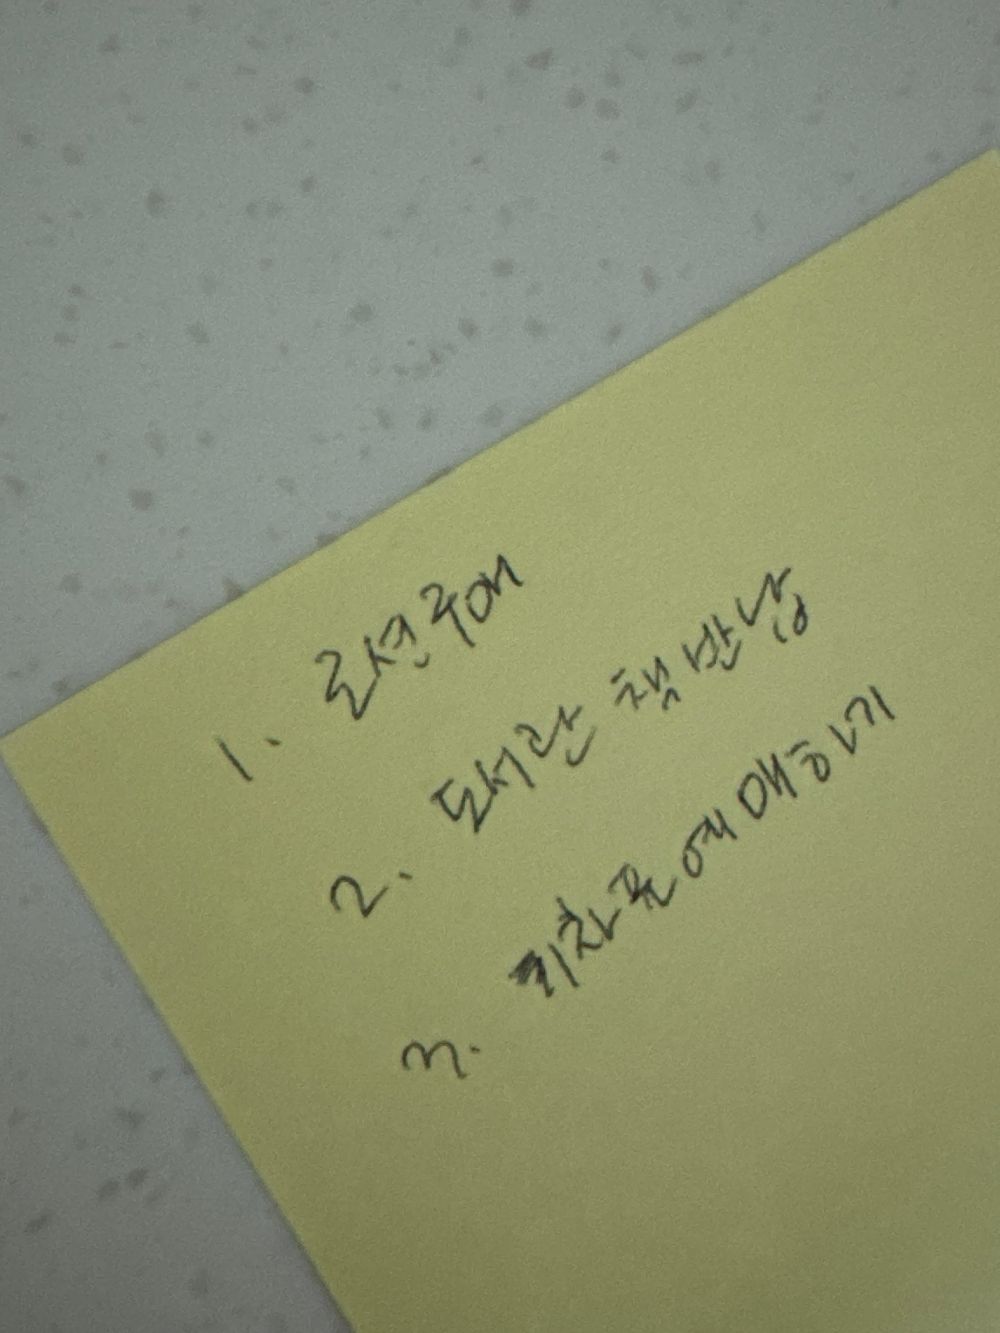 1. 로션 구매
2. 도서관 책 반납
3. 기차표 예매하기